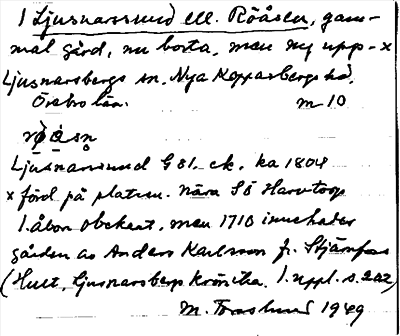 1 Ljusnarssund ell. Rööåsen, gam-
mal gård, nu borta, men ny upp- x
Ljusnarsbergs sn. Nya Kopparbergs hd.
Örebro län. m 10
Ljusnarssund GSI. ek. ka 1804
x förd på platsen. nära SÖ Haratorp
1. åbon obekant, men 1710 innehades
gården av Anders Karlsson fr. Stjärnfors
(Hult, Ljusnarsbergs krönika. 1. uppl. s. 202)
M. 1949